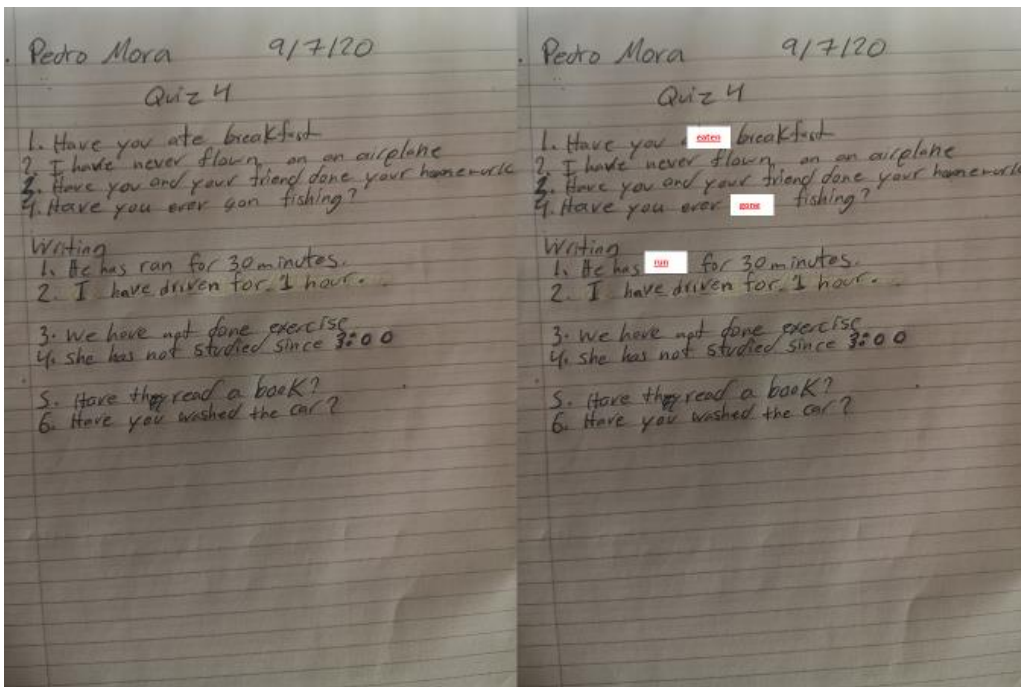 Pedro Mora 9/7/20
Quiz 4
1. Have you ate breakfast
2. I have never flown, on an airplane
3. Have you and your friend done your homework
4. Have you ever gon fishing?
Writing
1. He has ran for 30 minutes.
2. I have driven for 1 hour.
3. We have not done exercise
4. she has not studied since 3:00
5. Have they read a book?
6. Have you washed the car?
Pedro Mora 9/7/20
Quiz 4
1. Have you eaten breakfast
2. I have never flown, on an airplane
3. Have you and your friend done your homework
4. Have you ever gone fishing?
Writing
1. He has run for 30 minutes.
2. I have driven for 1 hour.
3. We have not done exercise
4. she has not studied since 3:00
5. Have they read a book?
6. Have you washed the car?